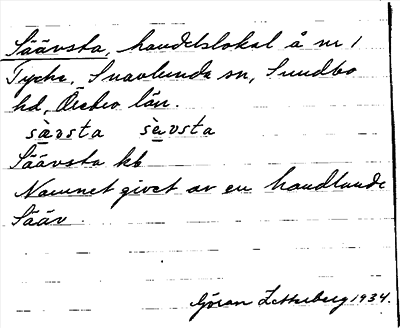 Säävsta, handelslokal å nr 1
Tycke, Snavlunda sn, Sundbo
hd, Örebro län.
sävsta sävsta
Säävsta kb
Namnet givet av en handlande
Sääv.
Göran Zetterberg 1934.